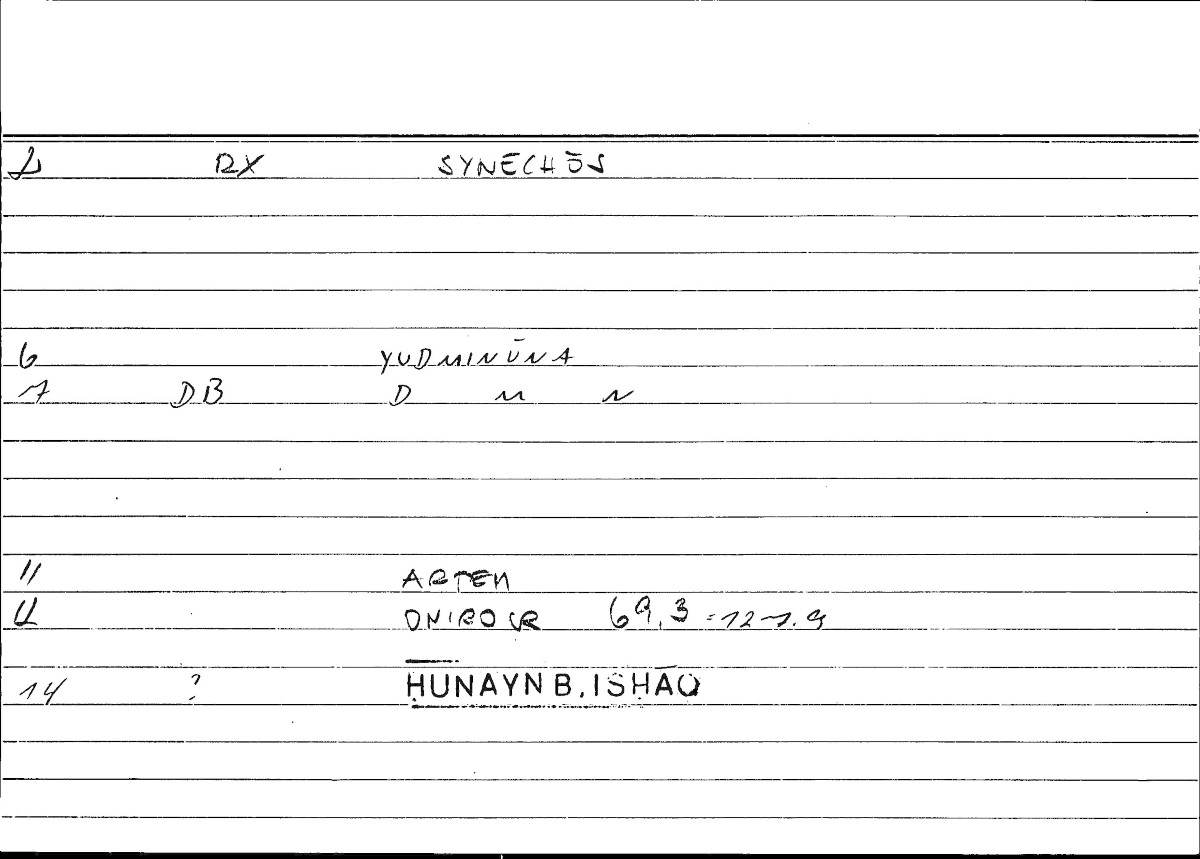 2 RX SYNECHŌS
6 YUDMINŪNA
7 DB D M N
11 ARTEM
12 ONIROCR 69,3
14 ? ḤUNAYN B. ISḤĀQ